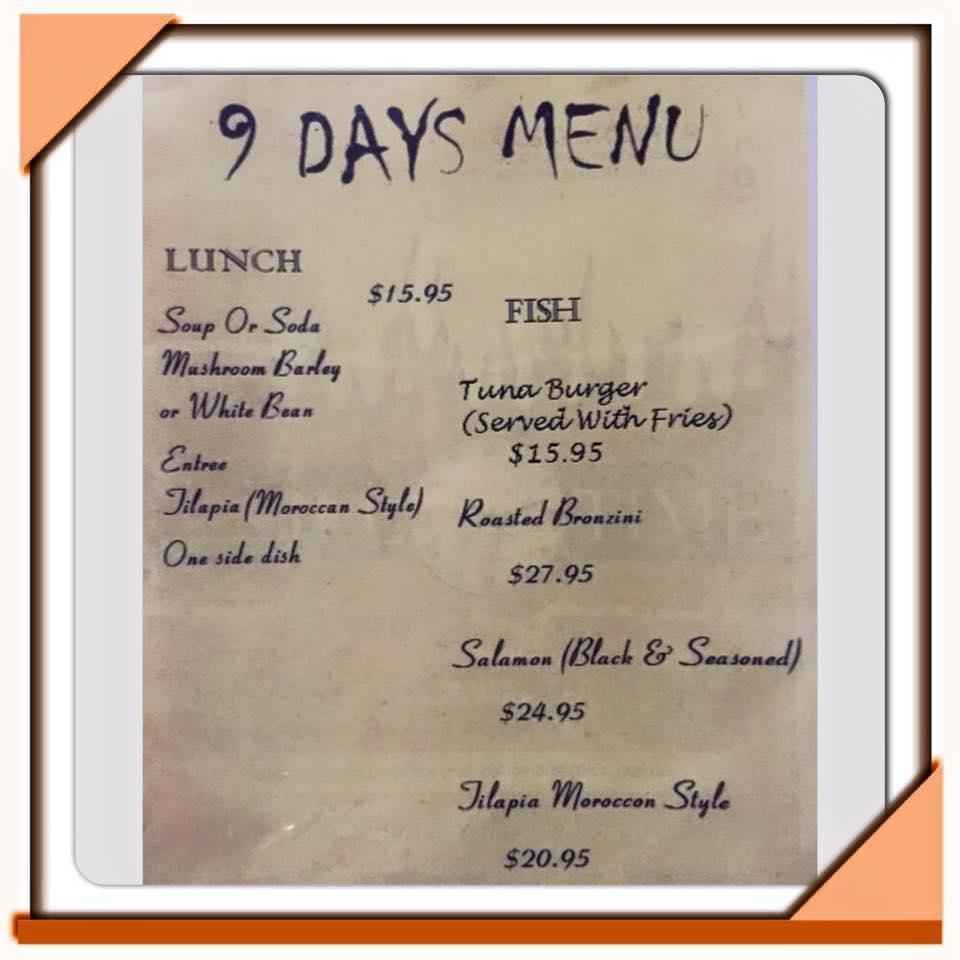 9 DAYS MENU
LUNCH
$15.95
Soup Or Soda
Mushroom Barley
or White Bean
Entree
Tilapia (Moroccan Style)
One side dish
FISH
Tuna Burger
(Served With Fries)
$15.95
Roasted Bronzini
$27.95
Salamon (Black & Seasoned)
$24.95
Tilapia Moroccon Style
$20.95